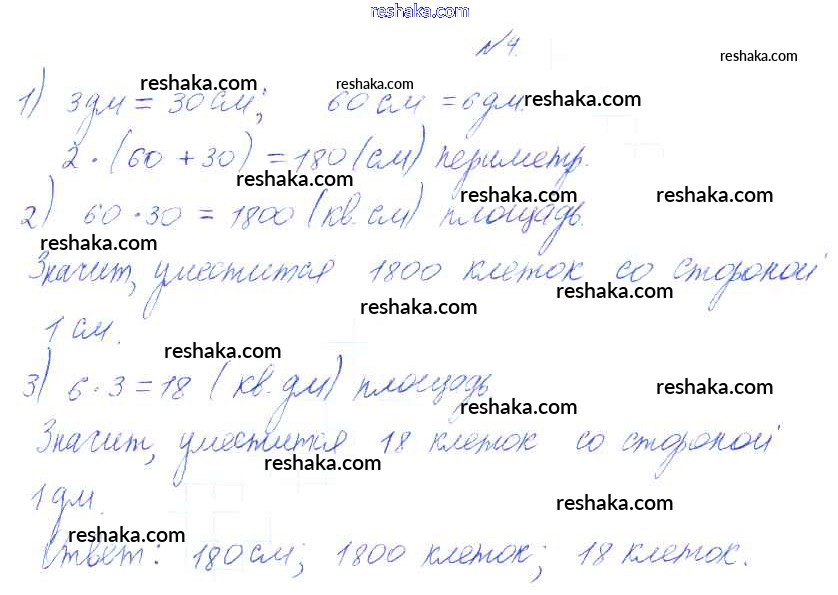 reshaka.com
№4.
reshaka.com
reshaka.com
reshaka.com
1) 3 дм = 30 см; 60 см = 6 дм.
reshaka.com
2 · (60 + 30) = 180 (см) периметр.
reshaka.com
reshaka.com
reshaka.com
2) 60 · 30 = 1800 (кв. см) площадь.
reshaka.com
Значит, уместится 1800 клеток со стороной
reshaka.com
reshaka.com
1 см.
reshaka.com
3) 6 · 3 = 18 (кв. дм) площадь
reshaka.com
reshaka.com
Значит, уместится 18 клеток со стороной
reshaka.com
1 дм.
reshaka.com
reshaka.com
Ответ: 180 см; 1800 клеток; 18 клеток.